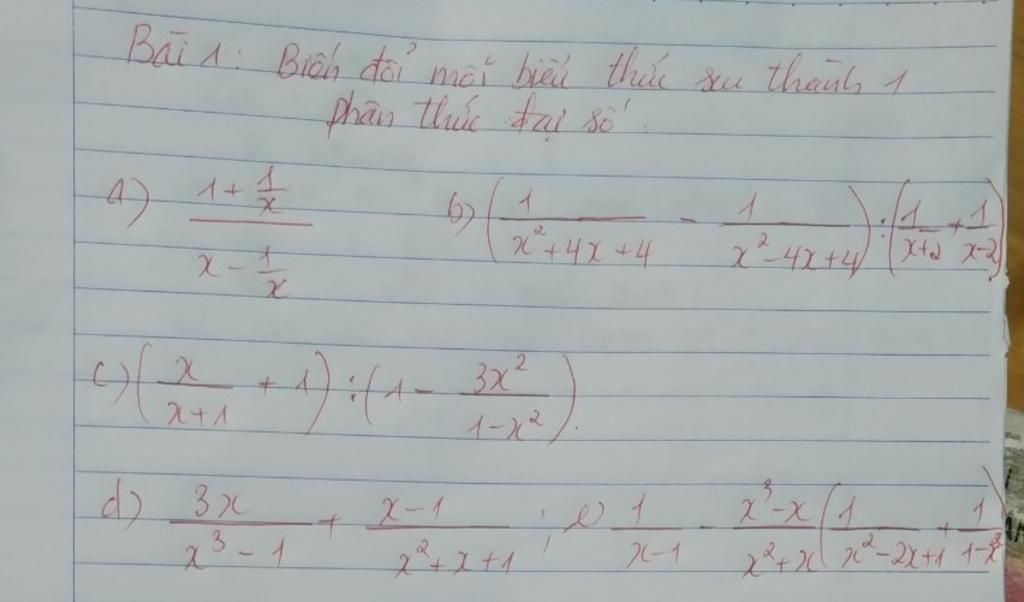 Bài 1: Biến đổi mỗi biểu thức sau thành 1
phân thức đại số.
a) (1 + 1/x)/(x - 1/x) b) (1/(x²+4x+4) - 1/(x²-4x+4)) : (1/(x+2) + 1/(x-2))
c) (x/(x+1) + 1) : (1 - 3x²/(1-x²)).
d) 3x/(x³-1) + (x-1)/(x²+x+1) ; e) 1/(x-1) - (x³-x)/(x²+x) (1/(x²-2x+1) + 1/(1-x²))